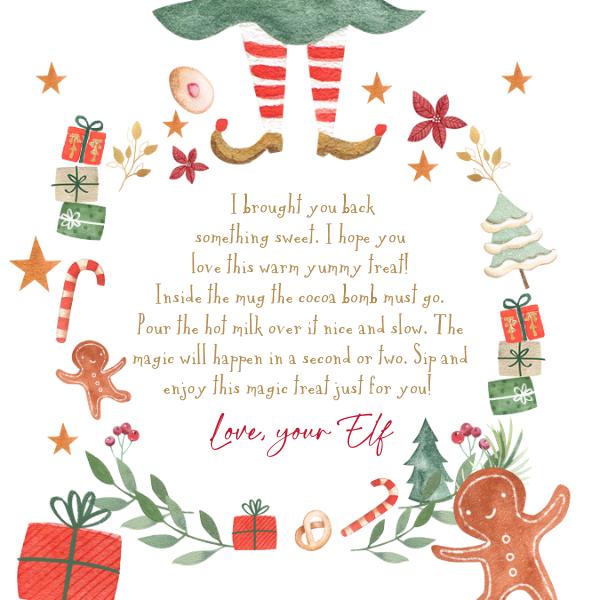 I brought you back
something sweet. I hope you
love this warm yummy treat!
Inside the mug the cocoa bomb must go.
Pour the hot milk over it nice and slow. The
magic will happen in a second or two. Sip and
enjoy this magic treat just for you!
Love, your Elf